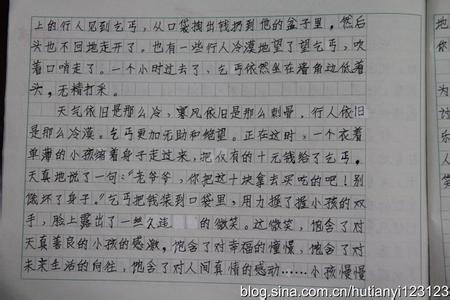 上的行人见到乞丐，从口袋拽出钱扔到他的盆子里，然后
头也不回地走开了。也有一些行人冷漠地望了望乞丐，吹
着口哨走了。一个小时过去了，乞丐依然坐在墙角边低着
头，无精打采。
天气依旧是那么冷，寒风依旧是那么刺骨，行人依旧
是那么冷漠。乞丐更加无助和绝望。正在这时，一个衣着
单薄的小孩缩着身子走过来，把仅有的十元钱给了乞丐。
天真地说了一句：“老爷爷，你把这十块拿去买吃的吧！别
饿坏了身子。”乞丐把钱装到口袋里，用力握了握小孩的双
手，脸上露出了一丝久违的微笑。这微笑，饱含了对
天真善良的小孩的感激，饱含了对幸福的憧憬，饱含了对
未来生活的向往，饱含了对人间真情的感动……小孩慢慢
地
你
为
过
乐
人
blog.sina.com.cn/hutianyi123123